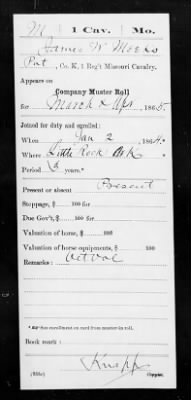 M | 1 Cav. | Mo.
James W Meeks
Pvt, Co. K, 1 Reg't Missouri Cavalry.
Appears on
Company Muster Roll
for March & Apr, 1865.
Joined for duty and enrolled:
When Jan 2, 1864.*
Where Little Rock Ark
Period 3 years.*
Present or absent Present
Stoppage, $ 100 for
Due Gov't, $ 100 for
Valuation of horse, $ 100
Valuation of horse equipments, $ 100
Remarks: Vet Vol
* See enrollment on card from muster-in roll.
Book mark:
Knapp
Copyist.